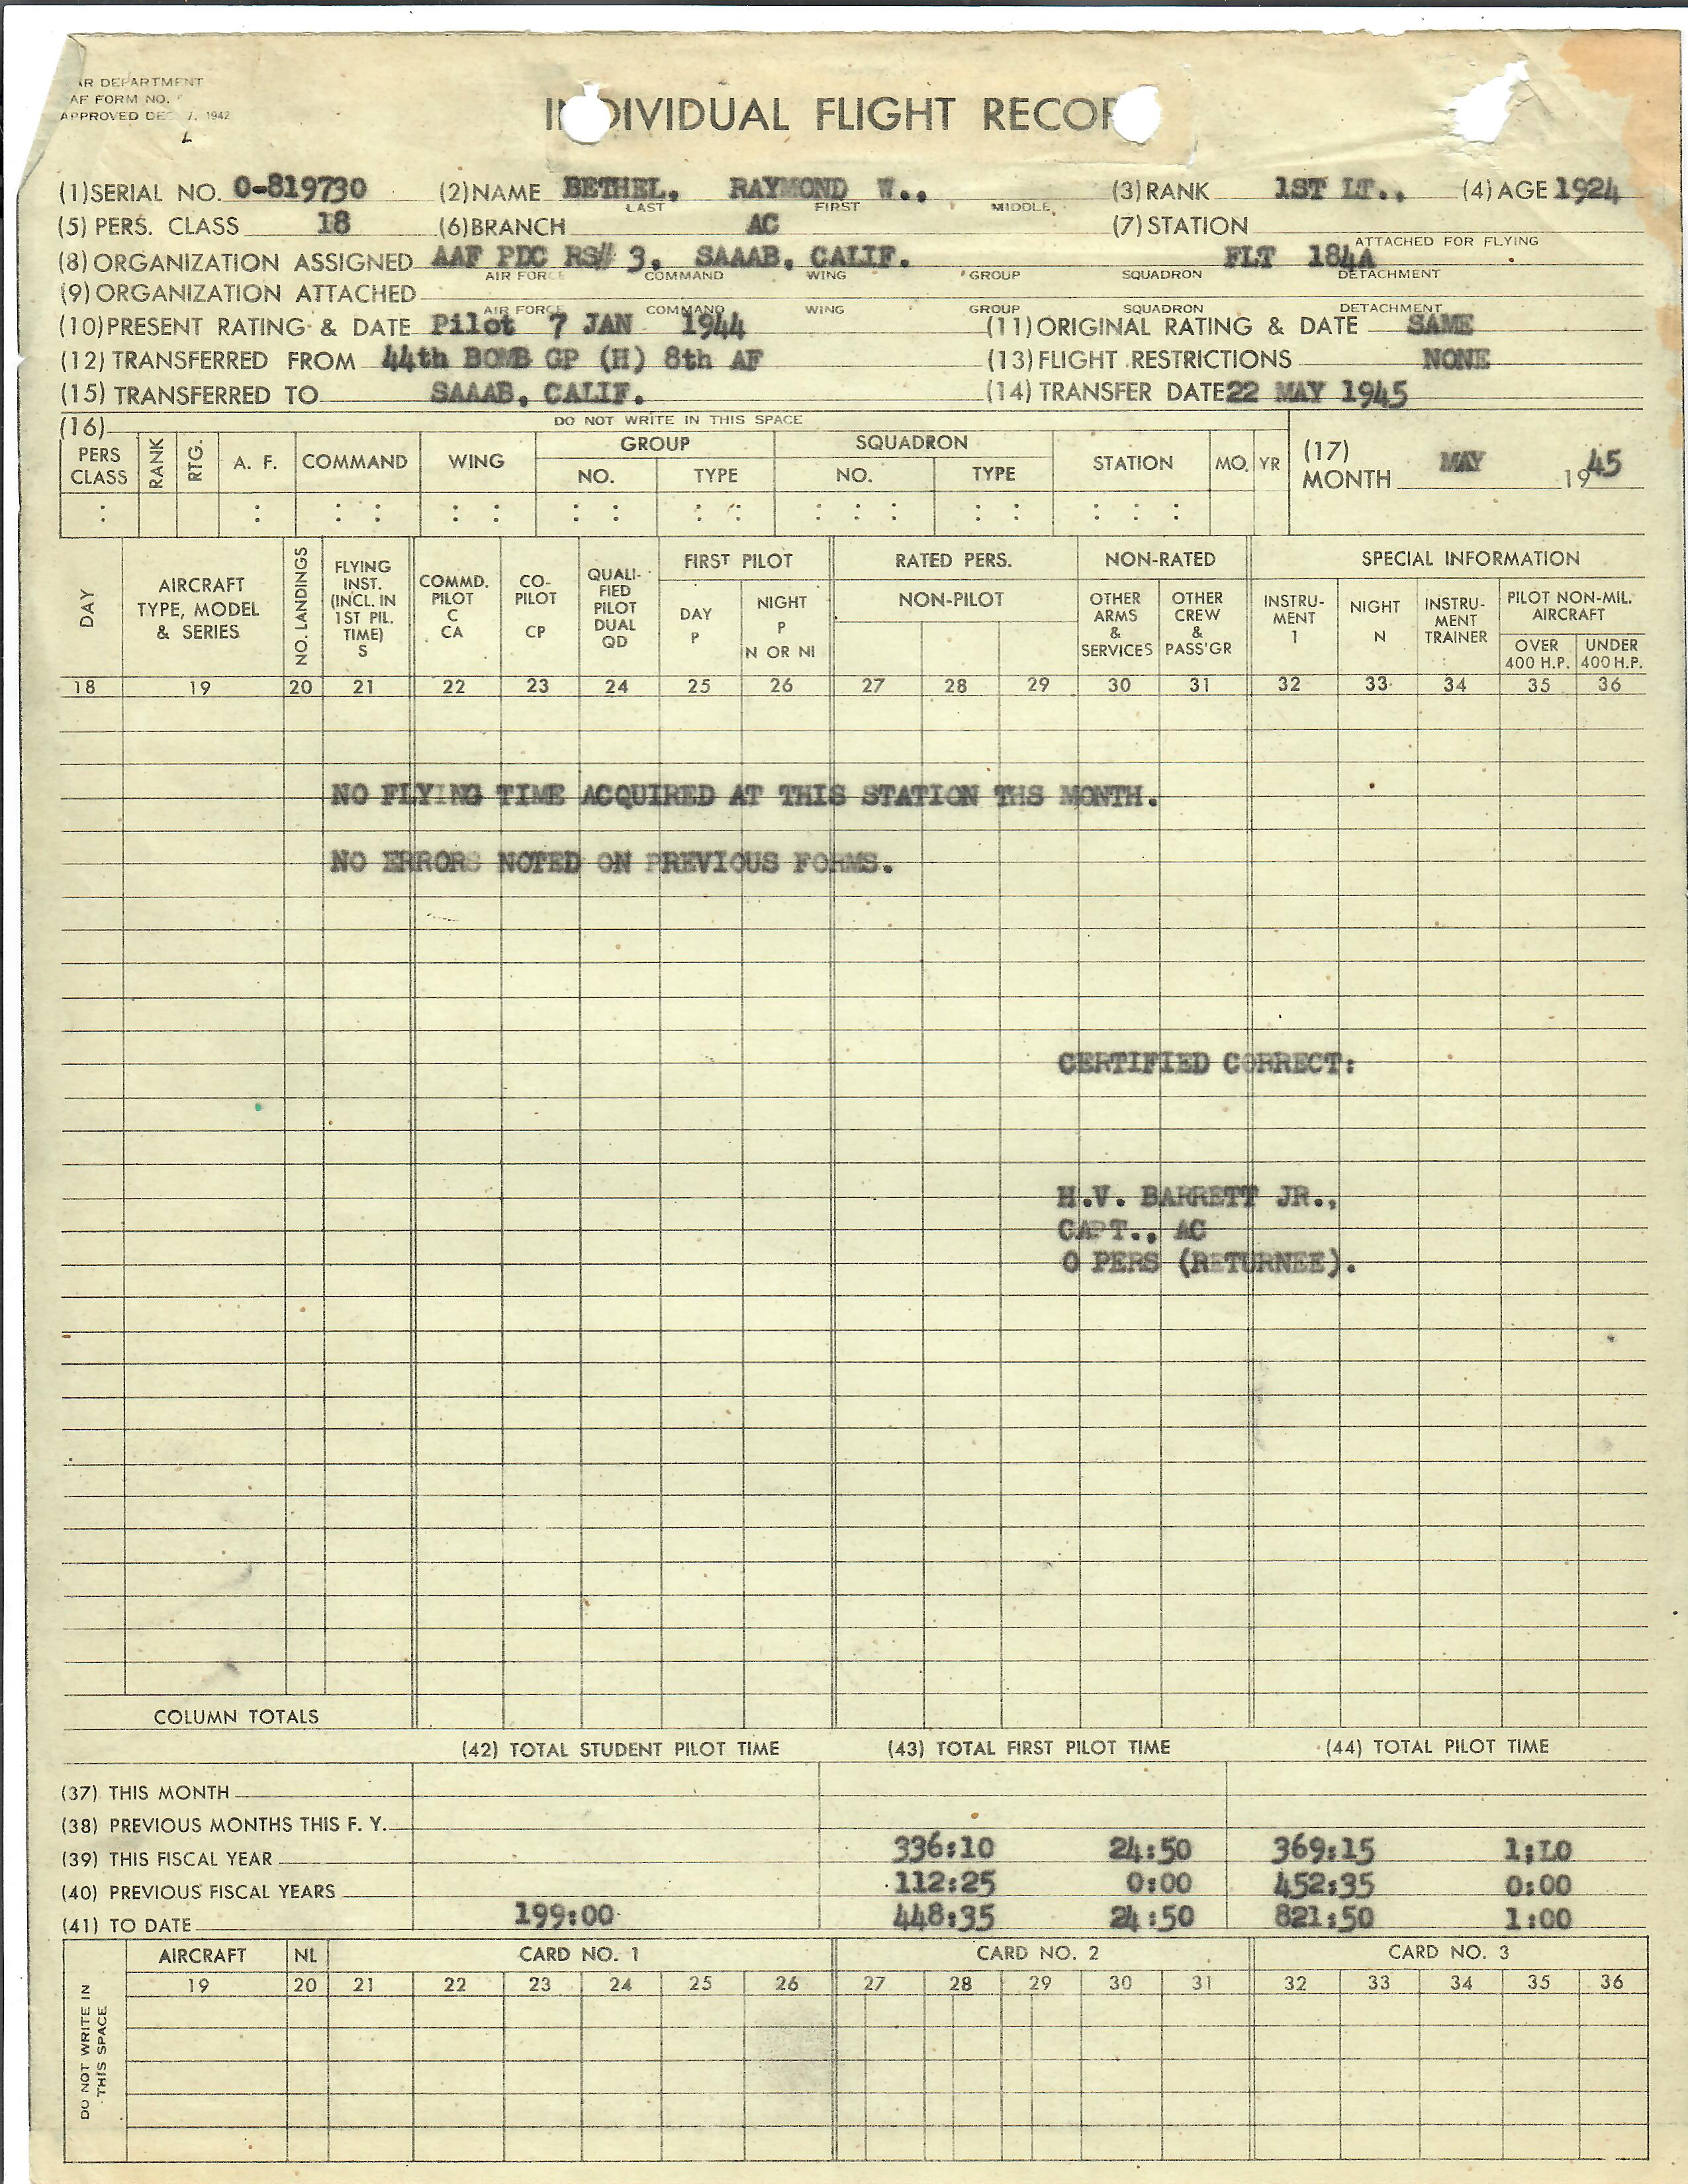 AR DEPARTMENT
AF FORM NO.
APPROVED DEC 7, 1942
INDIVIDUAL FLIGHT RECOR
(1) SERIAL NO. 0-819730 (2) NAME BETHEL, RAYMOND W., (3) RANK 1ST LT., (4) AGE 1924
LAST FIRST MIDDLE
(5) PERS. CLASS 18 (6) BRANCH AC (7) STATION
ATTACHED FOR FLYING
(8) ORGANIZATION ASSIGNED AAF PDC RS# 3, SAAAB, CALIF. FLT 184A
AIR FORCE COMMAND WING GROUP SQUADRON DETACHMENT
(9) ORGANIZATION ATTACHED
AIR FORCE COMMAND WING GROUP SQUADRON DETACHMENT
(10) PRESENT RATING & DATE Pilot 7 JAN 1944 (11) ORIGINAL RATING & DATE SAME
(12) TRANSFERRED FROM 44th BOMB GP (H) 8th AF (13) FLIGHT RESTRICTIONS NONE
(15) TRANSFERRED TO SAAAB, CALIF. (14) TRANSFER DATE 22 MAY 1945
(16) DO NOT WRITE IN THIS SPACE
PERS CLASS RANK RTG. A. F. COMMAND WING GROUP NO. TYPE SQUADRON NO. TYPE STATION MO. YR
(17) MONTH MAY 1945
DAY AIRCRAFT TYPE, MODEL & SERIES NO. LANDINGS FLYING INST. (INCL. IN 1ST PIL. TIME) S COMMD. PILOT C CA CO-PILOT CP QUALI-FIED PILOT DUAL QD FIRST PILOT DAY P NIGHT P N OR NI RATED PERS. NON-PILOT NON-RATED OTHER ARMS & SERVICES OTHER CREW & PASS'GR SPECIAL INFORMATION INSTRU-MENT I NIGHT N INSTRU-MENT TRAINER PILOT NON-MIL. AIRCRAFT OVER 400 H.P. UNDER 400 H.P.
18 19 20 21 22 23 24 25 26 27 28 29 30 31 32 33 34 35 36
NO FLYING TIME ACQUIRED AT THIS STATION THS MONTH.
NO ERRORS NOTED ON PREVIOUS FORMS.
CERTIFIED CORRECT:
H.V. BARRETT JR.,
CAPT., AC
O PERS (RETURNEE).
COLUMN TOTALS
(42) TOTAL STUDENT PILOT TIME (43) TOTAL FIRST PILOT TIME (44) TOTAL PILOT TIME
(37) THIS MONTH
(38) PREVIOUS MONTHS THIS F. Y.
(39) THIS FISCAL YEAR 336:10 24:50 369:15 1:10
(40) PREVIOUS FISCAL YEARS 112:25 0:00 452:35 0:00
(41) TO DATE 199:00 448:35 24:50 821:50 1:00
DO NOT WRITE IN THIS SPACE
AIRCRAFT NL CARD NO. 1 CARD NO. 2 CARD NO. 3
19 20 21 22 23 24 25 26 27 28 29 30 31 32 33 34 35 36